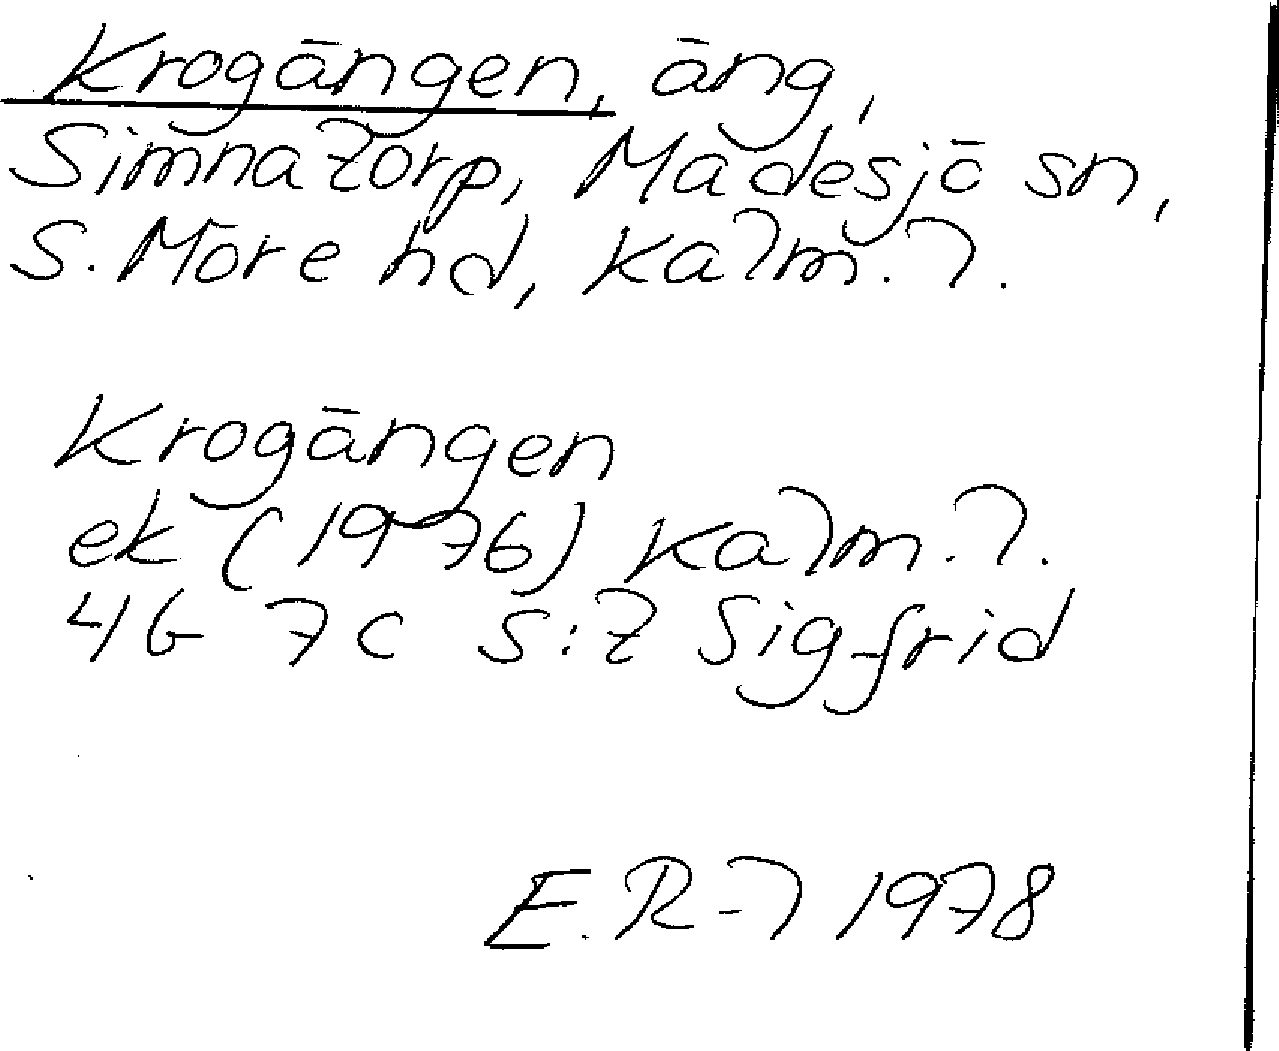 Krogängen, äng,
Simnatorp, Madesjö sn,
S. Möre hd, Kalm. l.
Krogängen
ek (1976) Kalm. l.
4G 7c S:t Sigfrid
E. R-l 1978